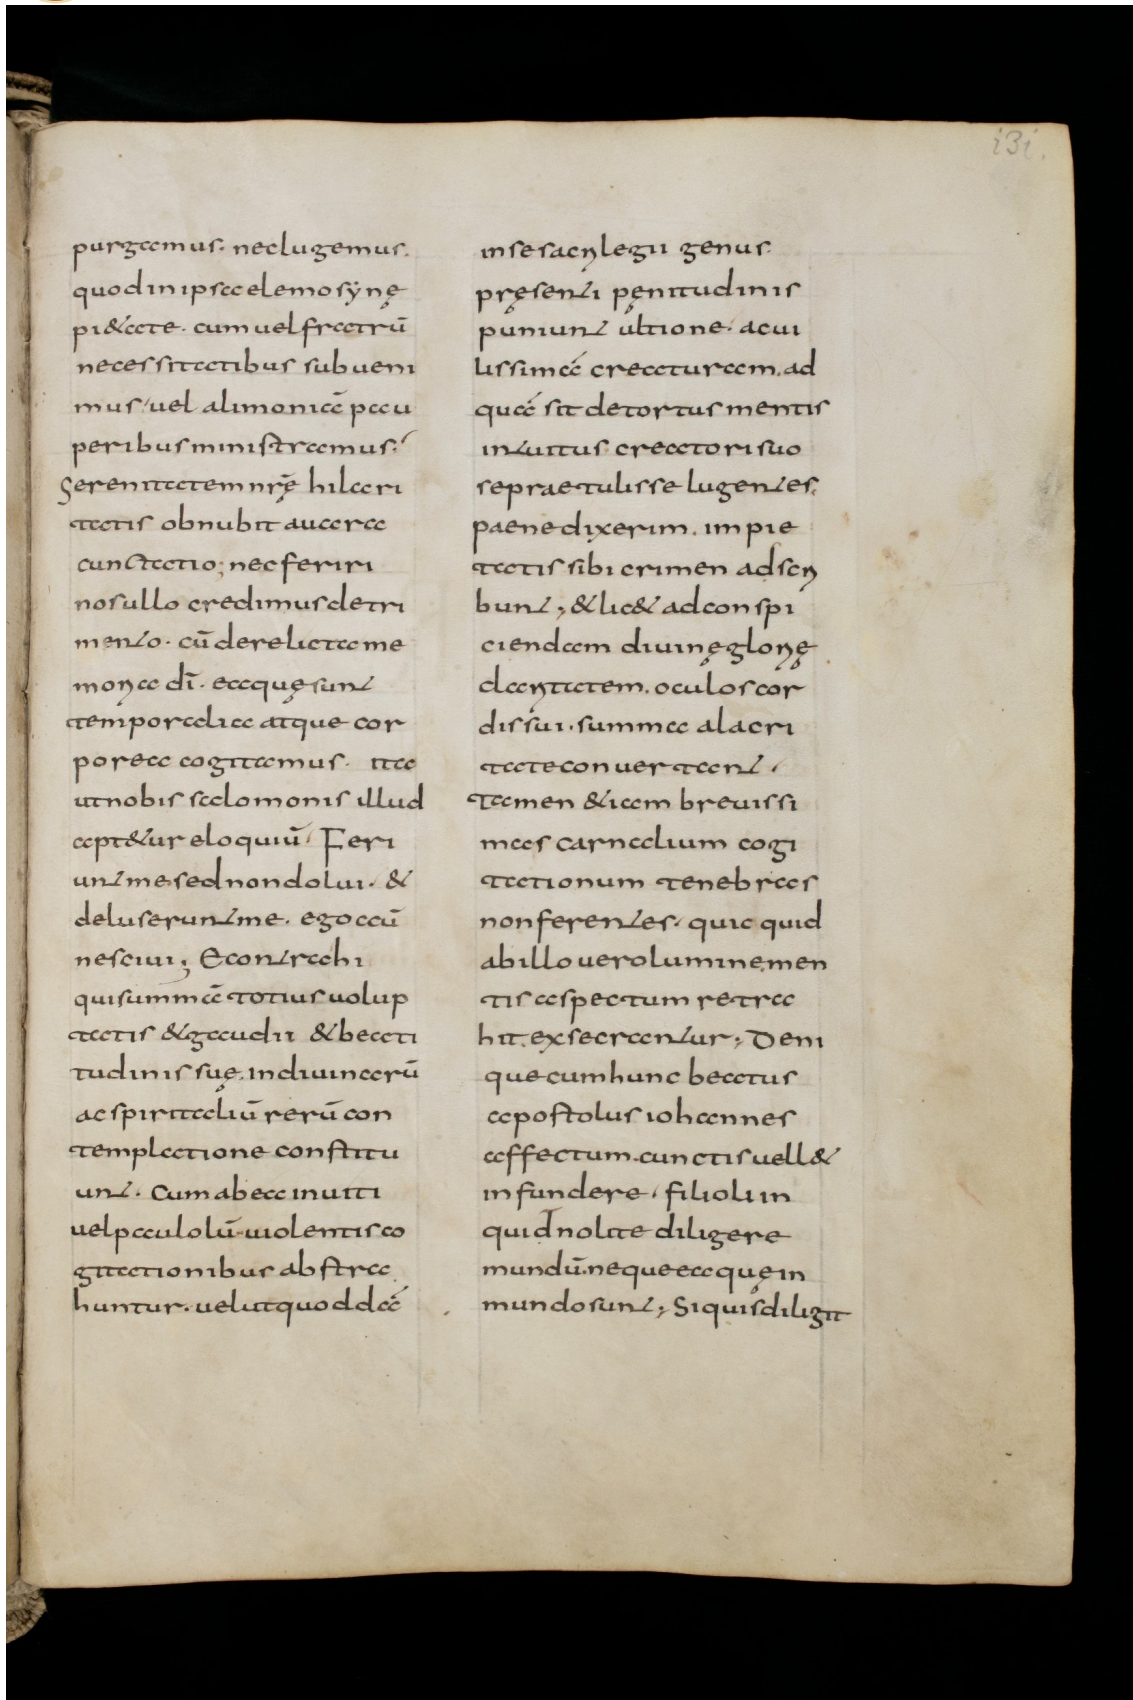 131.
purgamus. neclugemus.
quodinipsa elemosynę
pi&ate. cumuelfratrū
necessitatibus subueni
mus, uel alimoniā pau
peribusministramus;
Serenitatem nrę̄ hilari
tatis obnubit auara
cunctatio; necferiri
nosullo credimusdetri
mento. cū derelictame
moria dī. eaquęsunt
temporalia atque cor
porea cogitamus. ita
utnobis salomonis illud
apt&ur eloquiū, Feri
untmesednondolui. &
deluseruntme. egoaū
nesciui; Econtrahi
quisummā totiusuolup
tatis &gaudii &beati
tudinis suę. indiuinarū
ac spiritaliū rerū con
templatione constitu
unt. Cumabea inuiti
uelpaululū uiolentisco
gitationibus abstra
huntur. uelutquoddā
insesacrilegii genus.
pręsenti pęnitudinis
puniunt ultione. acui
lissimā creaturam. ad
quā sit detortusmentis
intuitus creatorisuo
sepraetulisse lugentes.
paenedixerim. impie
tatis sibi crimen adscri
bunt; &lic& adconspi
ciendam diuinęglorię
claritatem. oculoscor
dissui. summa alacri
tateconuertant.
Tamen &iam breuissi
mas carnalium cogi
tationum tenebras
nonferentes. quicquid
abillouerolumine,men
tis aspectum retra
hit. exsecrantur; Deni
quecumhunc beatus
apostolus iohannes
affectum.cunctisuell&
infundere. filioliin
quid nolite diligere
mundū.nequeeaquęin
mundosunt; Siquisdiligit